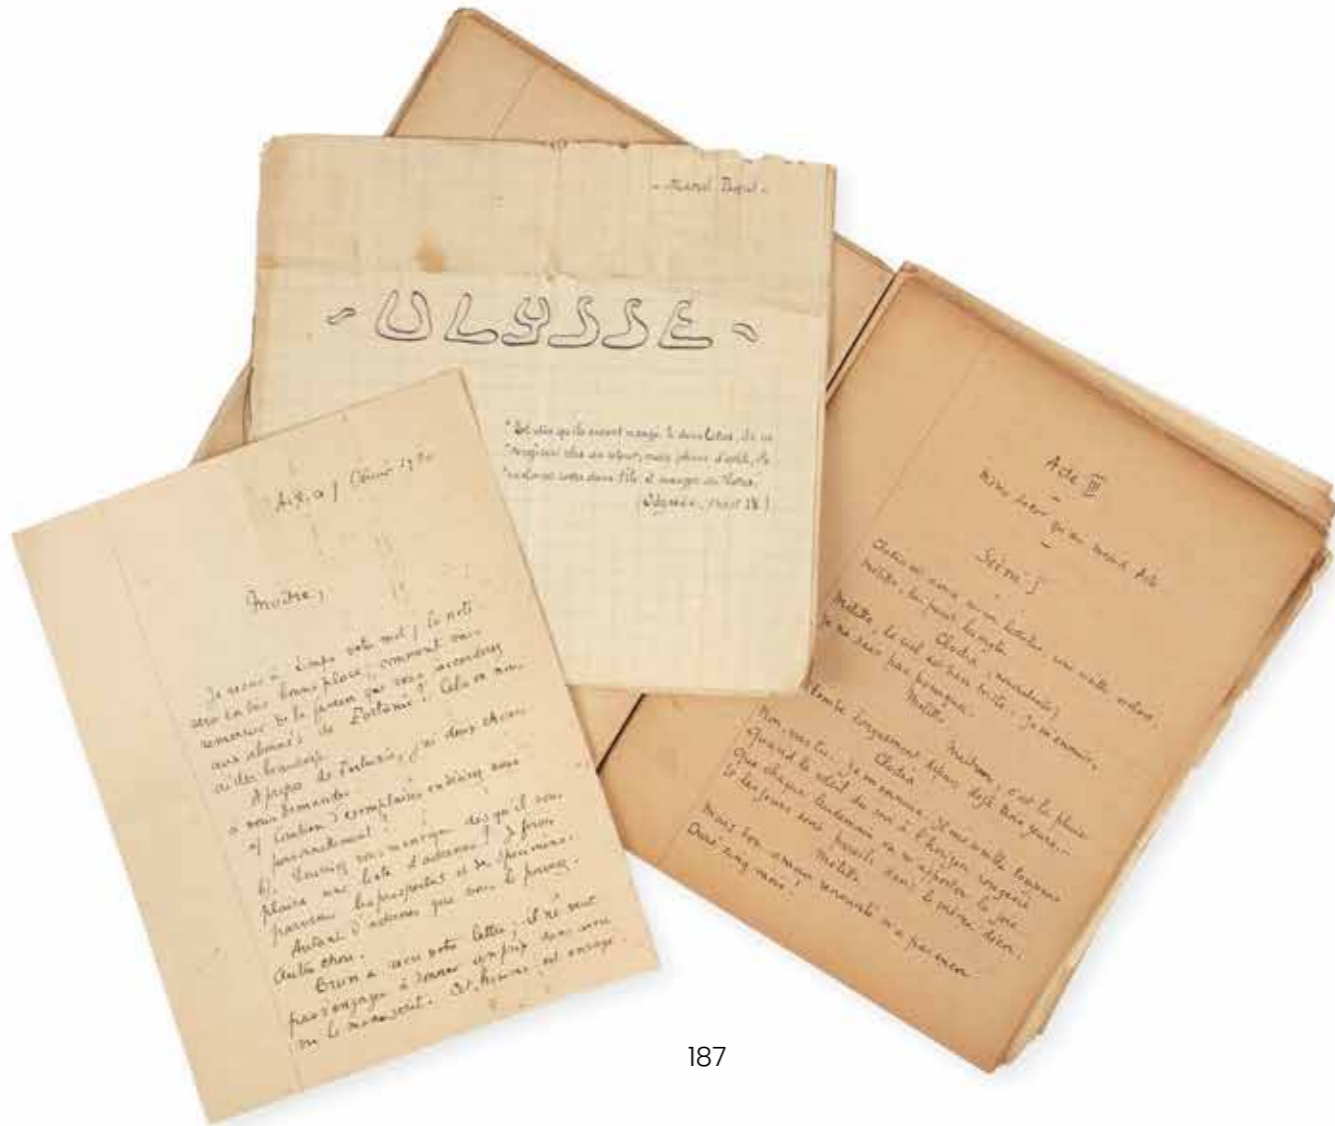 - Marcel Pagnol -
~ ULYSSE ~
"Et dès qu'ils eurent mangé le doux Lotus, ils ne
"songèrent plus au retour; mais, pleins d'oubli, ils
"voulaient rester dans l'île, et manger du Lotus."
(Odyssée, chant IX)
Aix, a 1 février 1920
Maître,
Je reçois à temps votre mot; la note
sera en très bonne place; comment vous
remercier de la faveur que vous accorderez
aux abonnés de Fortunio? Cela va nous
aider beaucoup.
A propos de Fortunio, j'ai deux choses
a vous demander
a/ Combien d'exemplaires en désirez vous
personnellement?
b/. Voudriez vous m'envoyer dès qu'il vous
plaira une liste d'adresses? Je ferai
parvenir des prospectus et des specimens.
Autant d'adresses que vous le pouvez.
Autre chose.
Brun a reçu votre lettre; il ne veut
pas s'engager à donner un prix sans avoir
vu le manuscrit. Cet homme est
Acte III
même décor qu'au second Acte
Scène I
Clodia est assise
Melitta,
Clodia (nonchalante)
Melitta, le ciel est bien triste. Je m'ennuie,
Je ne sais pas pourquoi.
Melitta
Maîtresse, c'est la pluie
Tombe longuement depuis déjà trois jours..
Clodia
Non, vois-tu, je m'ennuie. Il me semble toujours
Quand le soleil du soir à l'horizon rougeoie
Que chaque lendemain va m'apporter la joie
Et les jours sont pareils dans le même décor.
Melitta
Mais bon amour renouvelé n'a pas encor
Duré cinq mois!
187